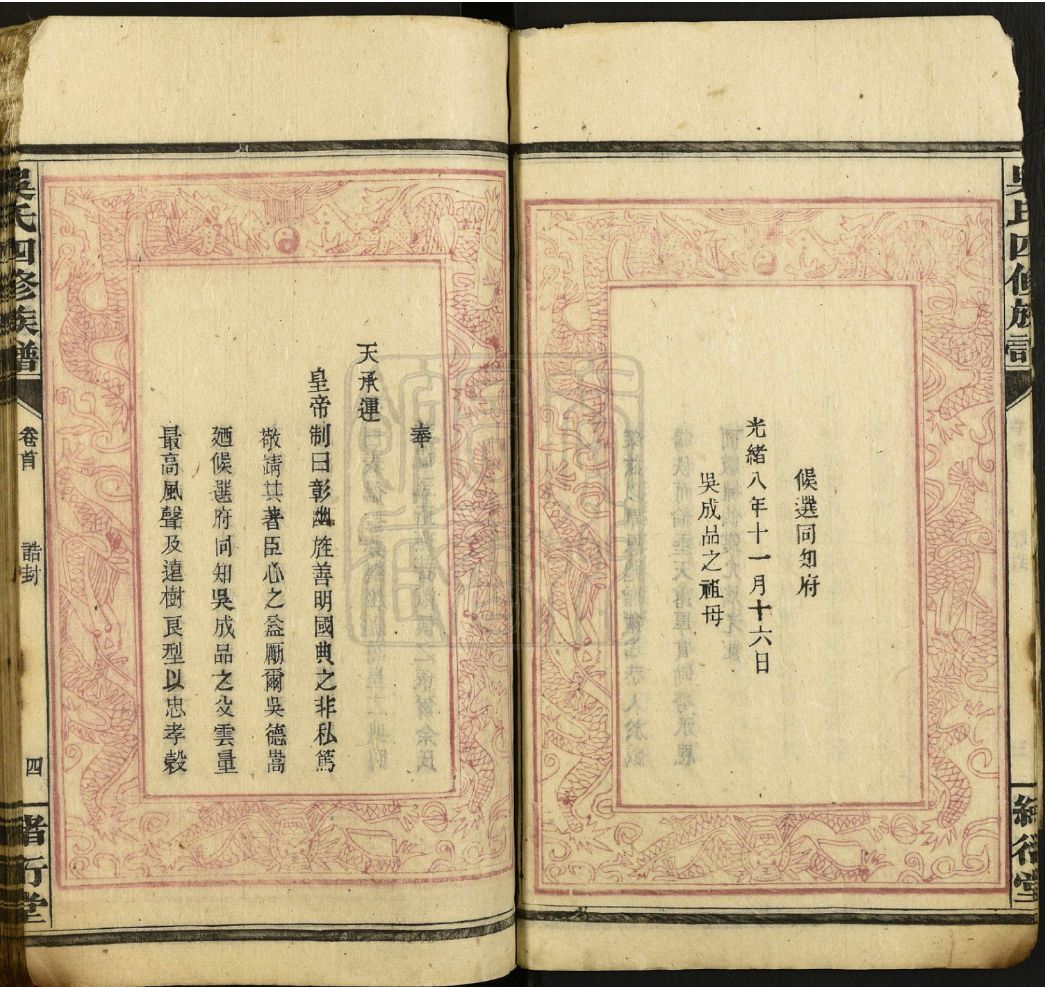 候選同知府
光緒八年十一月十六日
吳成品之祖母
奉
天承運
皇帝制曰彰幽旌善明國典之非私篤
敬靖其著臣心之益勵爾吳德嵩
廼候選府同知吳成品之父雲量
最高風聲及遠樹良型以忠孝穀
吳氏四修族譜
卷首
誥封
四
緒衍堂